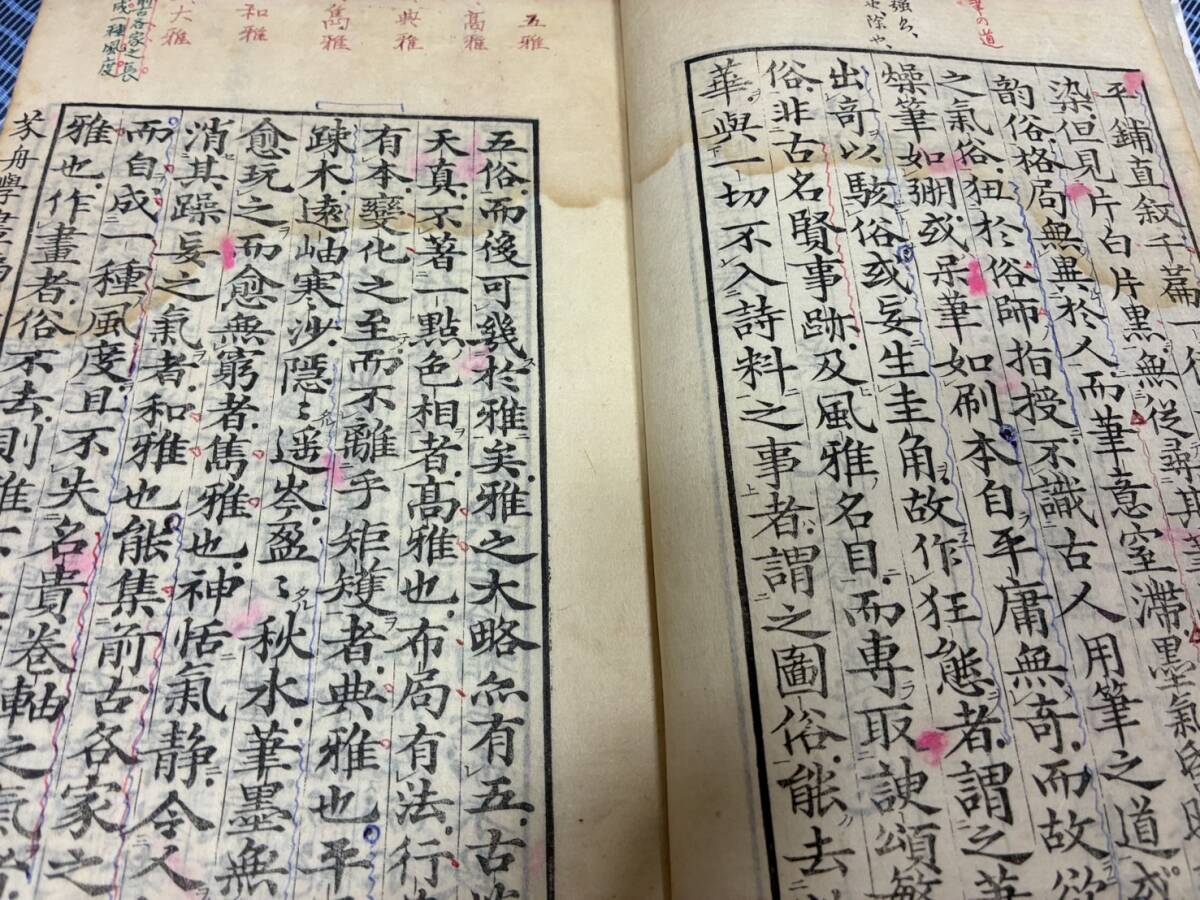 筆の道
平鋪直叙千篇一
染但見片白片黒無従尋其
韵俗格局無異於人而筆意窒滞墨氣
之氣俗狂於俗師指授不識古人用筆之道或
燥筆如弸或呆筆如刷本自平庸無奇而故欲
出奇以駭俗或妄生圭角故作狂態者謂之筆
俗非古名賢事跡及風雅名目而専取諛頌繁
華與一切不入詩料之事者謂之圖俗能去
五雅
高雅
典雅
雋雅
和雅
大雅
前古各家之長
成一種風度
五俗而後可幾於雅矣雅之大略亦有五古
天真不著一點色相者高雅也布局有法行
有本變化之至而不離乎矩矱者典雅也平
疎木遠岫寒沙隠〻遥岑盈〻秋水筆墨無
愈玩之而愈無窮者雋雅也神恬氣静令人
消其躁妄之氣者和雅也能集前古各家之
而自成一種風度且不失名貴卷軸之氣
雅也作畫者俗不去則雅不
芥舟學畫